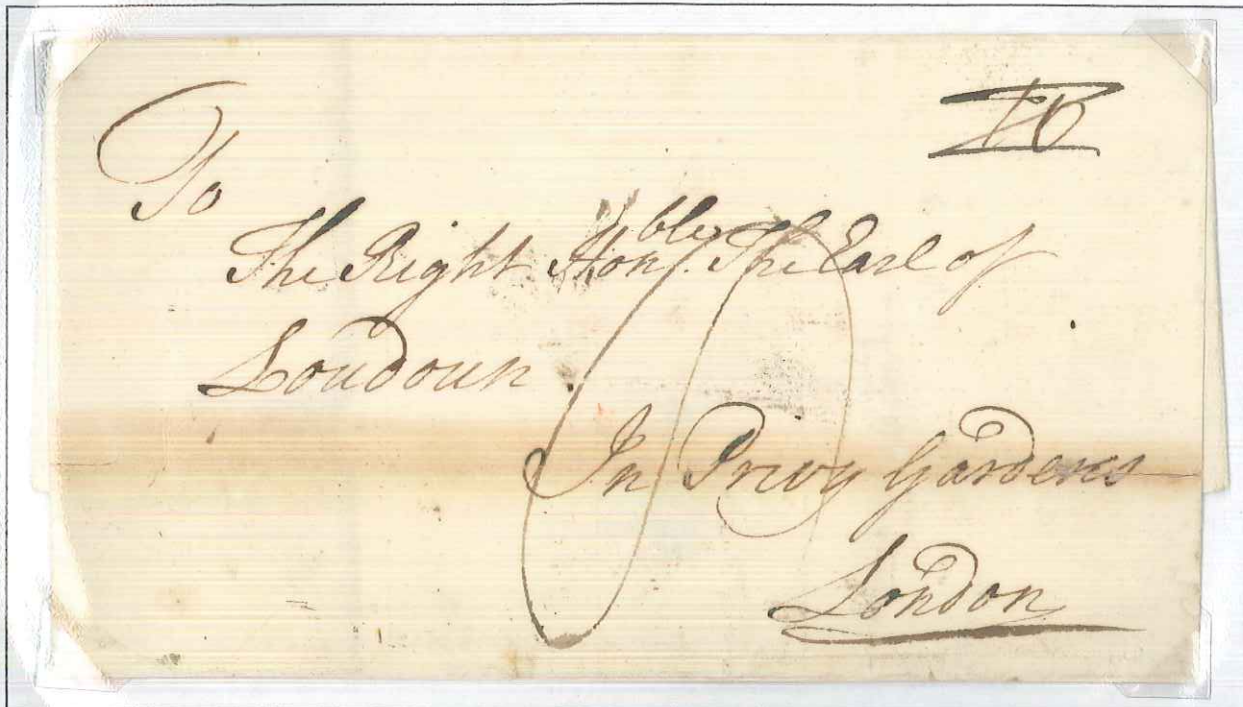 To
The Right Honble. The Earl of
Loudoun
In Privy Gardens
London